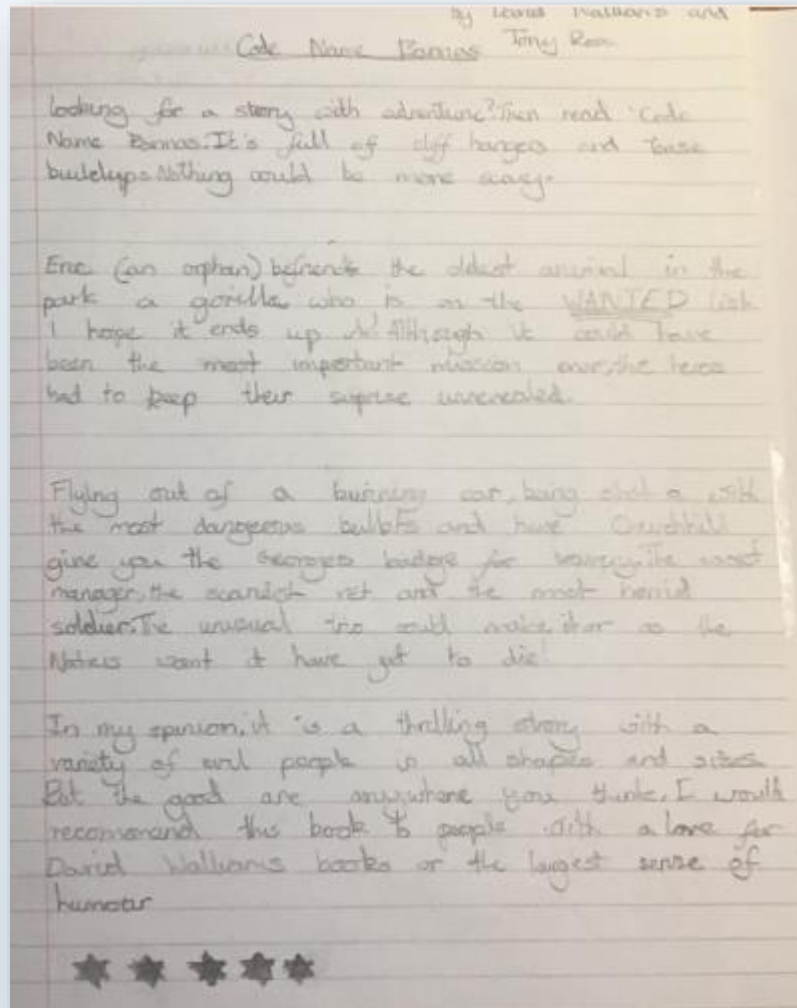 by David Walliams and
Code Name Bananas Tony Ross
looking for a story with adventure? Then read 'Code
Name Bananas. It's full of cliff hangers and tense
buildups. Nothing could be more scary.
Eric (an orphan) befriends the oldest animal in the
park a gorilla who is on the WANTED list
I hope it ends up ok! Although it could have
been the most important mission ever, the heros
had to keep their suprise unrevealed.
Flying out of a burning car, being shot with
the most dangerous bullets and have Churchhill
give you the Georges badge for bravery. The
manager, the scandish vet and the most horrid
soldier. The unusual trio could make it or as the
want it have got to die!
In my opinion, it is a thrilling story with a
variety of evil people in all shapes and sizes
But the good are anywhere you think. I would
recomerand this book to people with a love for
David Walliams books or the largest sense of
humour